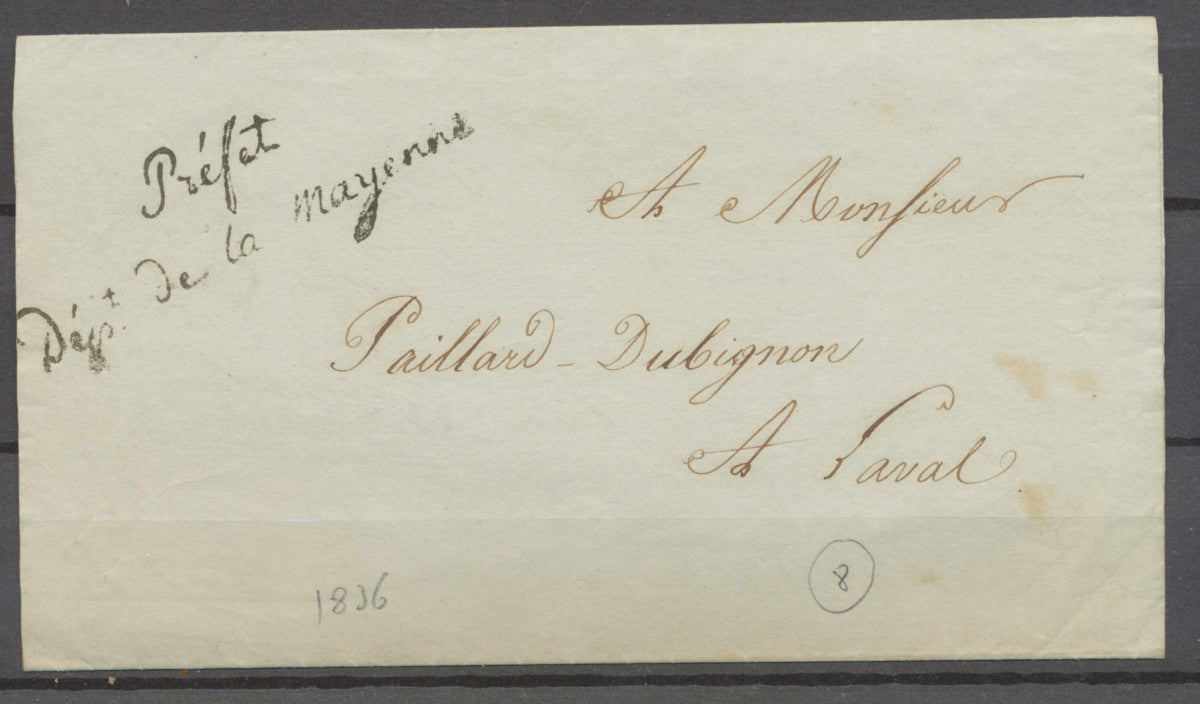 Préfet
Dépt. de la mayenne
A Monsieur
Paillard - Dubignon
A Laval
1836
8